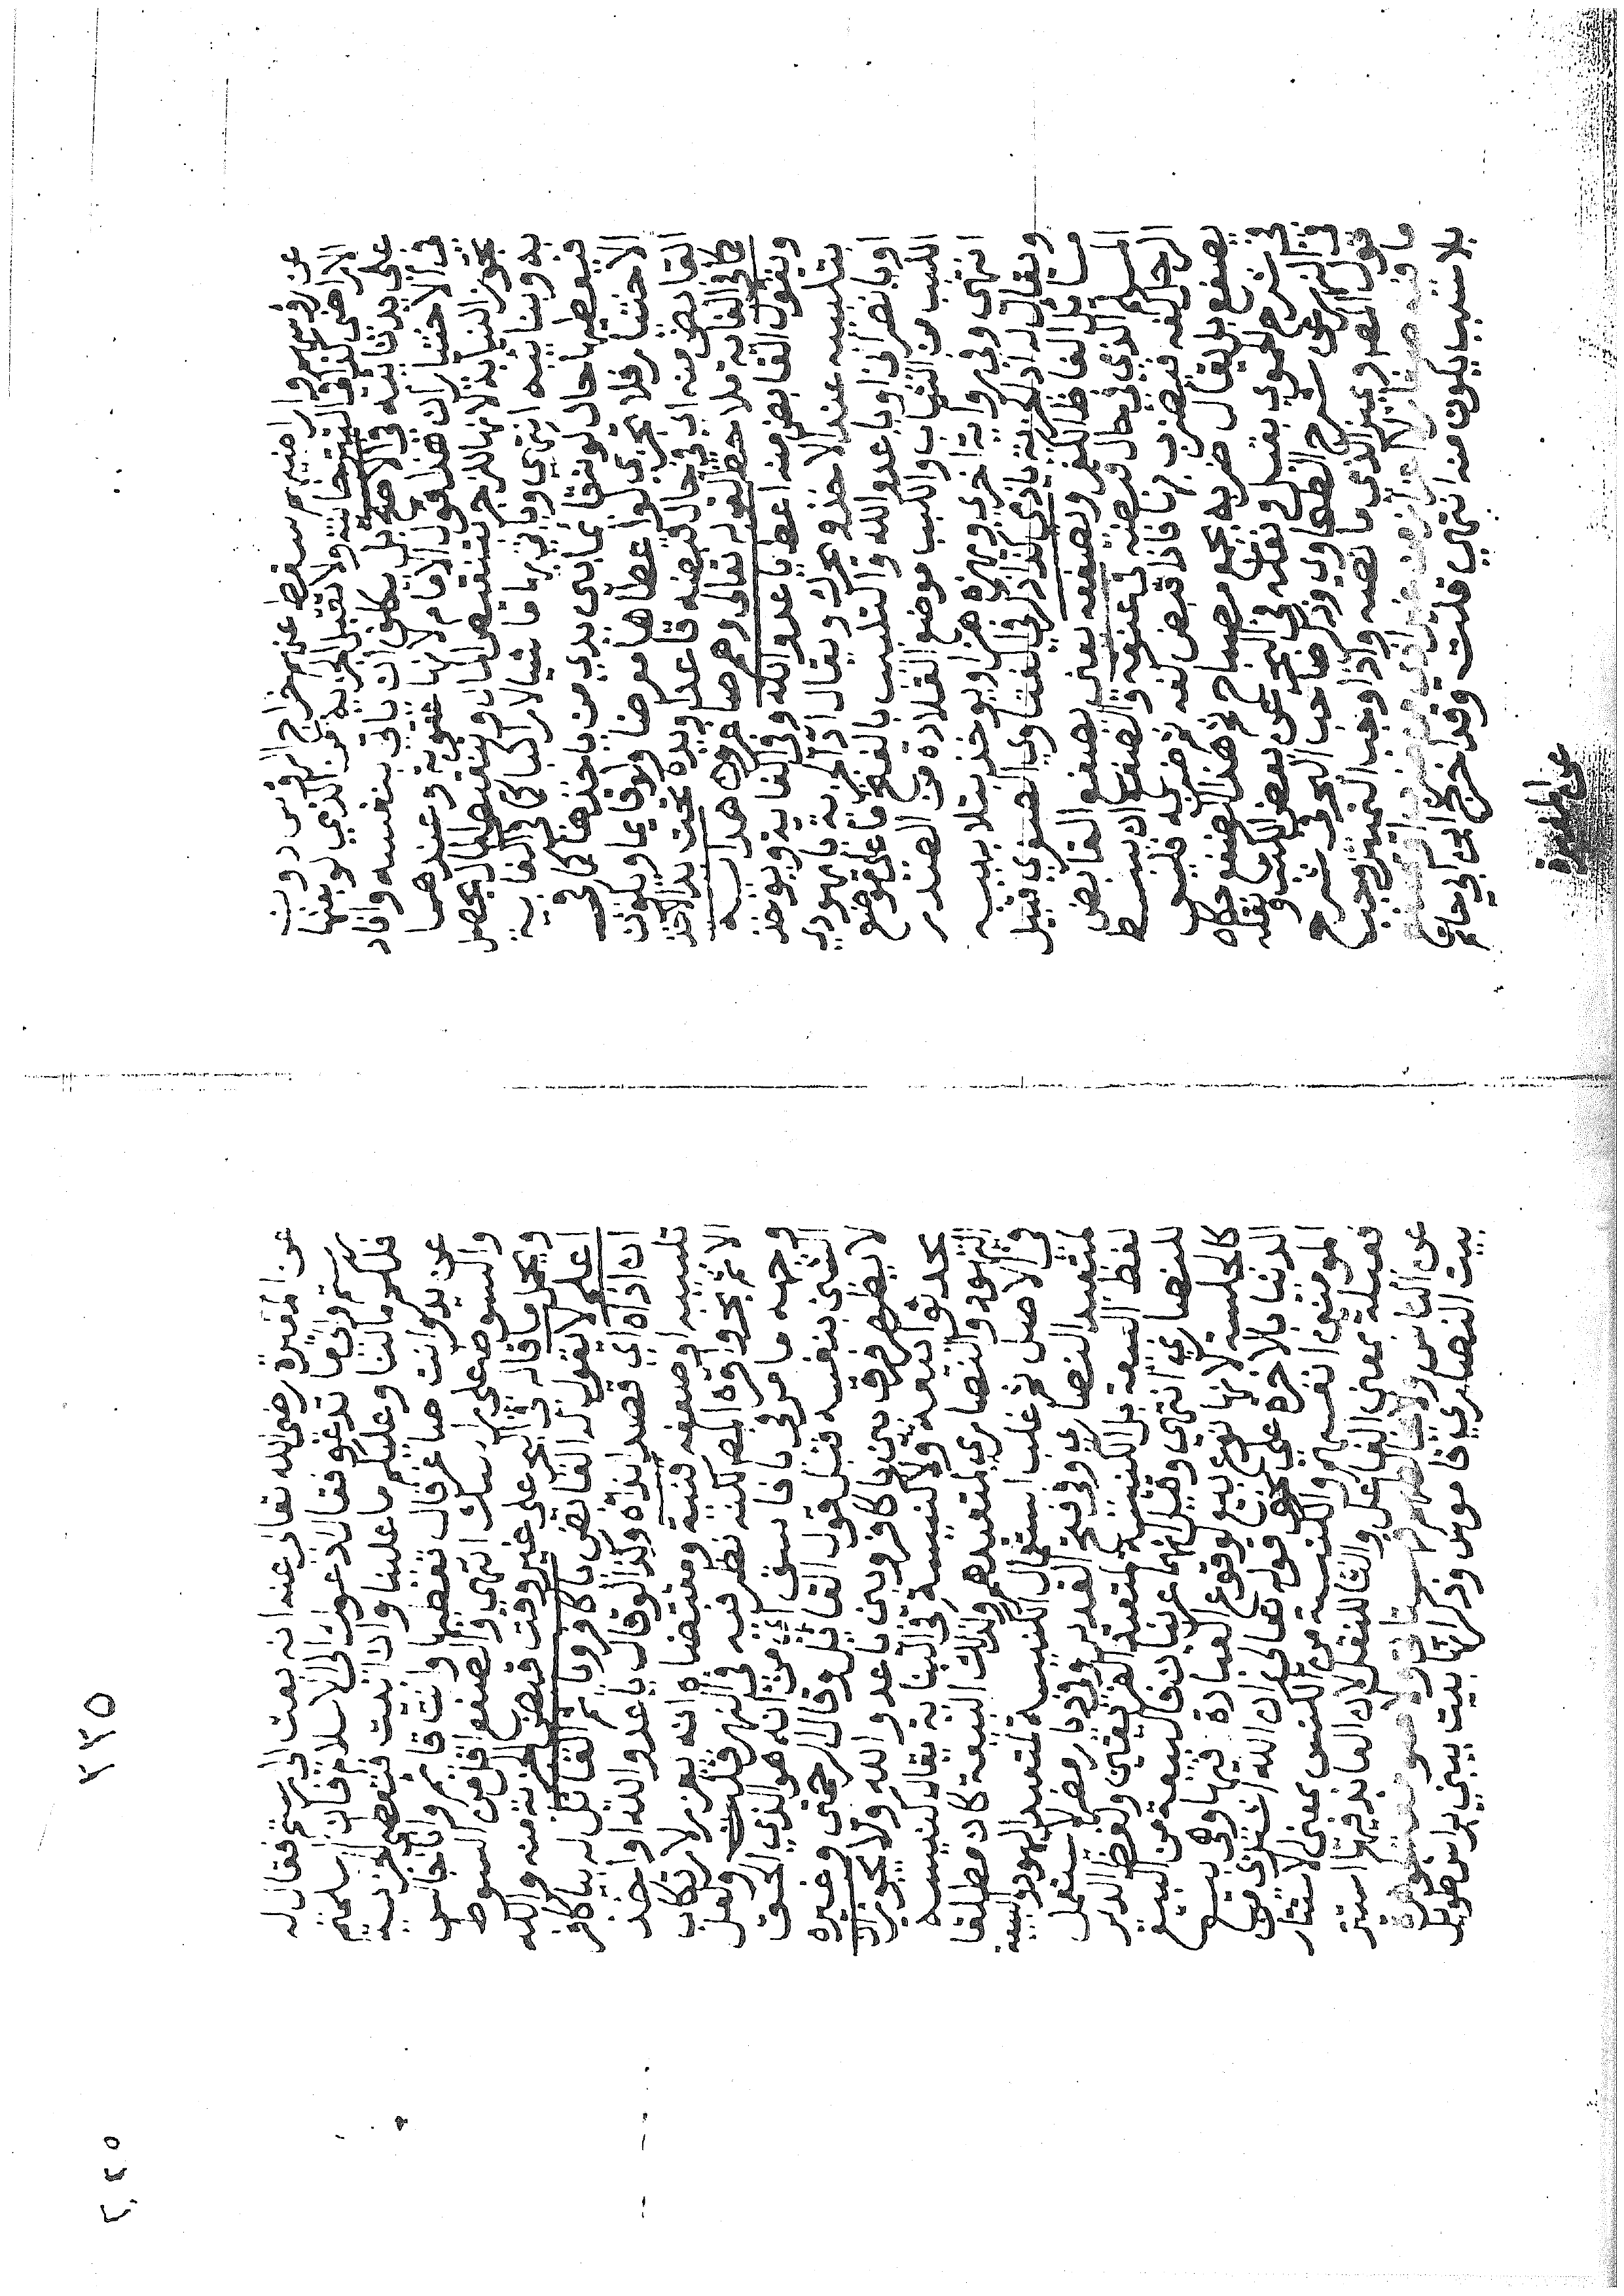 عن رؤسهم واراضيهم سقط عنهم خراج الرؤس دون
الاراضي كذا في التتارخانية ولا تقبل الجزية من الذمي لو بعثها
على يد نائبه في الاصح بل يكلف ان ياتي بنفسه وافاد
في الاختيار ان هذا قول الامام لانها عقوبة وعندهما
تجوز النيابة لانها للزجر بتنقيص المال ويتعطل ما يحصل
به وبنائبه انتهى وياتي بها ماشيا لا راكبا كما في الغاية
فيعطيها حال كونه قائما بين يدي من ياخذها كما في
الاختيار فلا تجزي لو اعطاها مع ضا ولا قاعدا ويكون
القابض منه اي في حال قبضه قاعدا ويده تحت يد الاخذ
كما في الغاية ملاحظة لقوله تعالى وهم صاغرون هداية
ويقول القابض منه اعط يا عدو الله وفي الغاية ويوخذ
بتلبيبه عند الاخذ ويحرك ويقال اد الجزية يا يهودي
او يا نصراني او يا عدو الله والتلبيب بالفتح ما على موضع
اللبب من الثياب واللبب موضع القلادة من الصدر
انتهى وفي رواية اخرى ويهزه هزا ويوخذ بتلابيبه
ويقال له اد الجزية يا ذمي كذا ذكر في الفتاوي الصغرى فقيل
هذا من الفاظ الكفر ويصفعه يعني يصفع القابض
المسلم الذمي في حال قبضه في عنقه والصفع ان يبسط
الرجل كفه فيضرب بها فاذا قبض كفه ثم ضربه فليس
بصفع بل يقال ضربه بجمع مصباح ثم هذا الصفع حكاه
في شرح الحموي بقيل ونقله في البحر عن بعض الكتب ونقله
في النهر عن شرح الطحاوي وذكر صاحب البحر في شرح
قول المص ويميز الذمي ما نصه واذا وجب التمييز وجب
بلا سبب يكون منه انتهى قلت وقد اخرج ابن ابي حاتم
عن المغيرة
٢٣٥
٢٤٥
عن المغيرة رضي الله تعالى عنه انه بعث الى رستم فقال له
رستم الى ما تدعو فقال ادعوك الى الاسلام فان اسلمتم
فلكم ما لنا وعليكم ما علينا وان ابيت فتعطي الجزية
عن يد وانت صاغر فقال تعطيها وانت قائم وانا جالس
والسوط على راسك انتهى والصفع اقل من السوط
ويحمل ما قاله في البحر على غير وقت قبض الجزية منه والله
اعلم لا يقول له القابض يا كافر ويا ثم القائل له يا كافر
ان اذاه اي قصد ايذاه وكذا لو قال يا عدو الله او اخذ
تلبيبه او صفعه قنية ومقتضاه انه يعزر لارتكاب
الاثم بحر واقره المص لكنه نظر فيه في النهر قلت ولعل
وجهه ما مر في يا فاسق من انه هو الذي الحق
الشين بنفسه قبل قول القائل وقال الرحمتي وغيره
لا يظهر فرق بين يا كافر وبين يا عدو الله ولا يجوز ان
يحدثوا بيعة ولا كنيسة في البناية يقال كنيسة
اليهود والنصارى لمتعبدهم وكذلك البيعة كان مطلقا
في الاصل ثم غلب استعمال الكنيسة لمتعبد اليهود والبيعة
لمتعبد النصارى وفي فتح القدير وفي ديار مصر لا يستعمل
لفظ البيعة بل الكنيسة لمتعبد الفريقين ولفظ الدير
للنصارى انتهى وقيل انهما عربيتان فالبيعة من البيع
كالجلسة لانها نوع بيع لوقوع العبادة فيها وهي بيع
الدنيا بالاخرة على نحو قوله تعالى ان الله اشترى من
المومنين انفسهم والكنيسة من الكنس بمعنى الاستتار
فعيلة بمعنى الفاعل والتا للنقل لان العابد فيها استتر
بيت النصارى قاموس وذكر انها بيت يبنى براس طويل